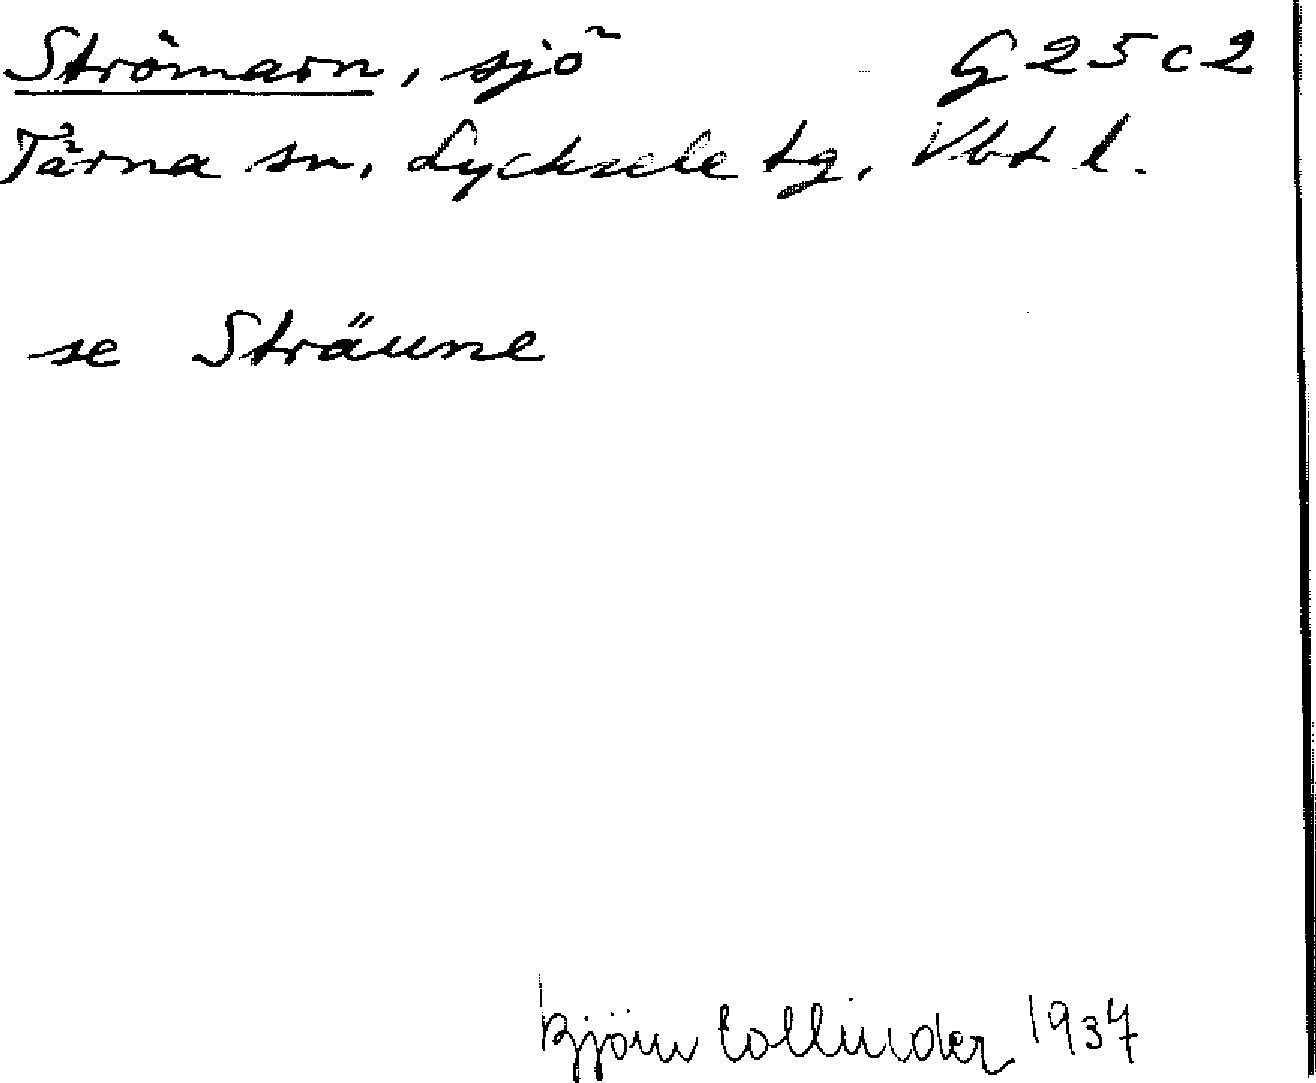 Strömarn, sjö G 25 c 2
Tärna sn, Lycksele tg, Vbt l.
se Sträune
Björn Collinder 1937